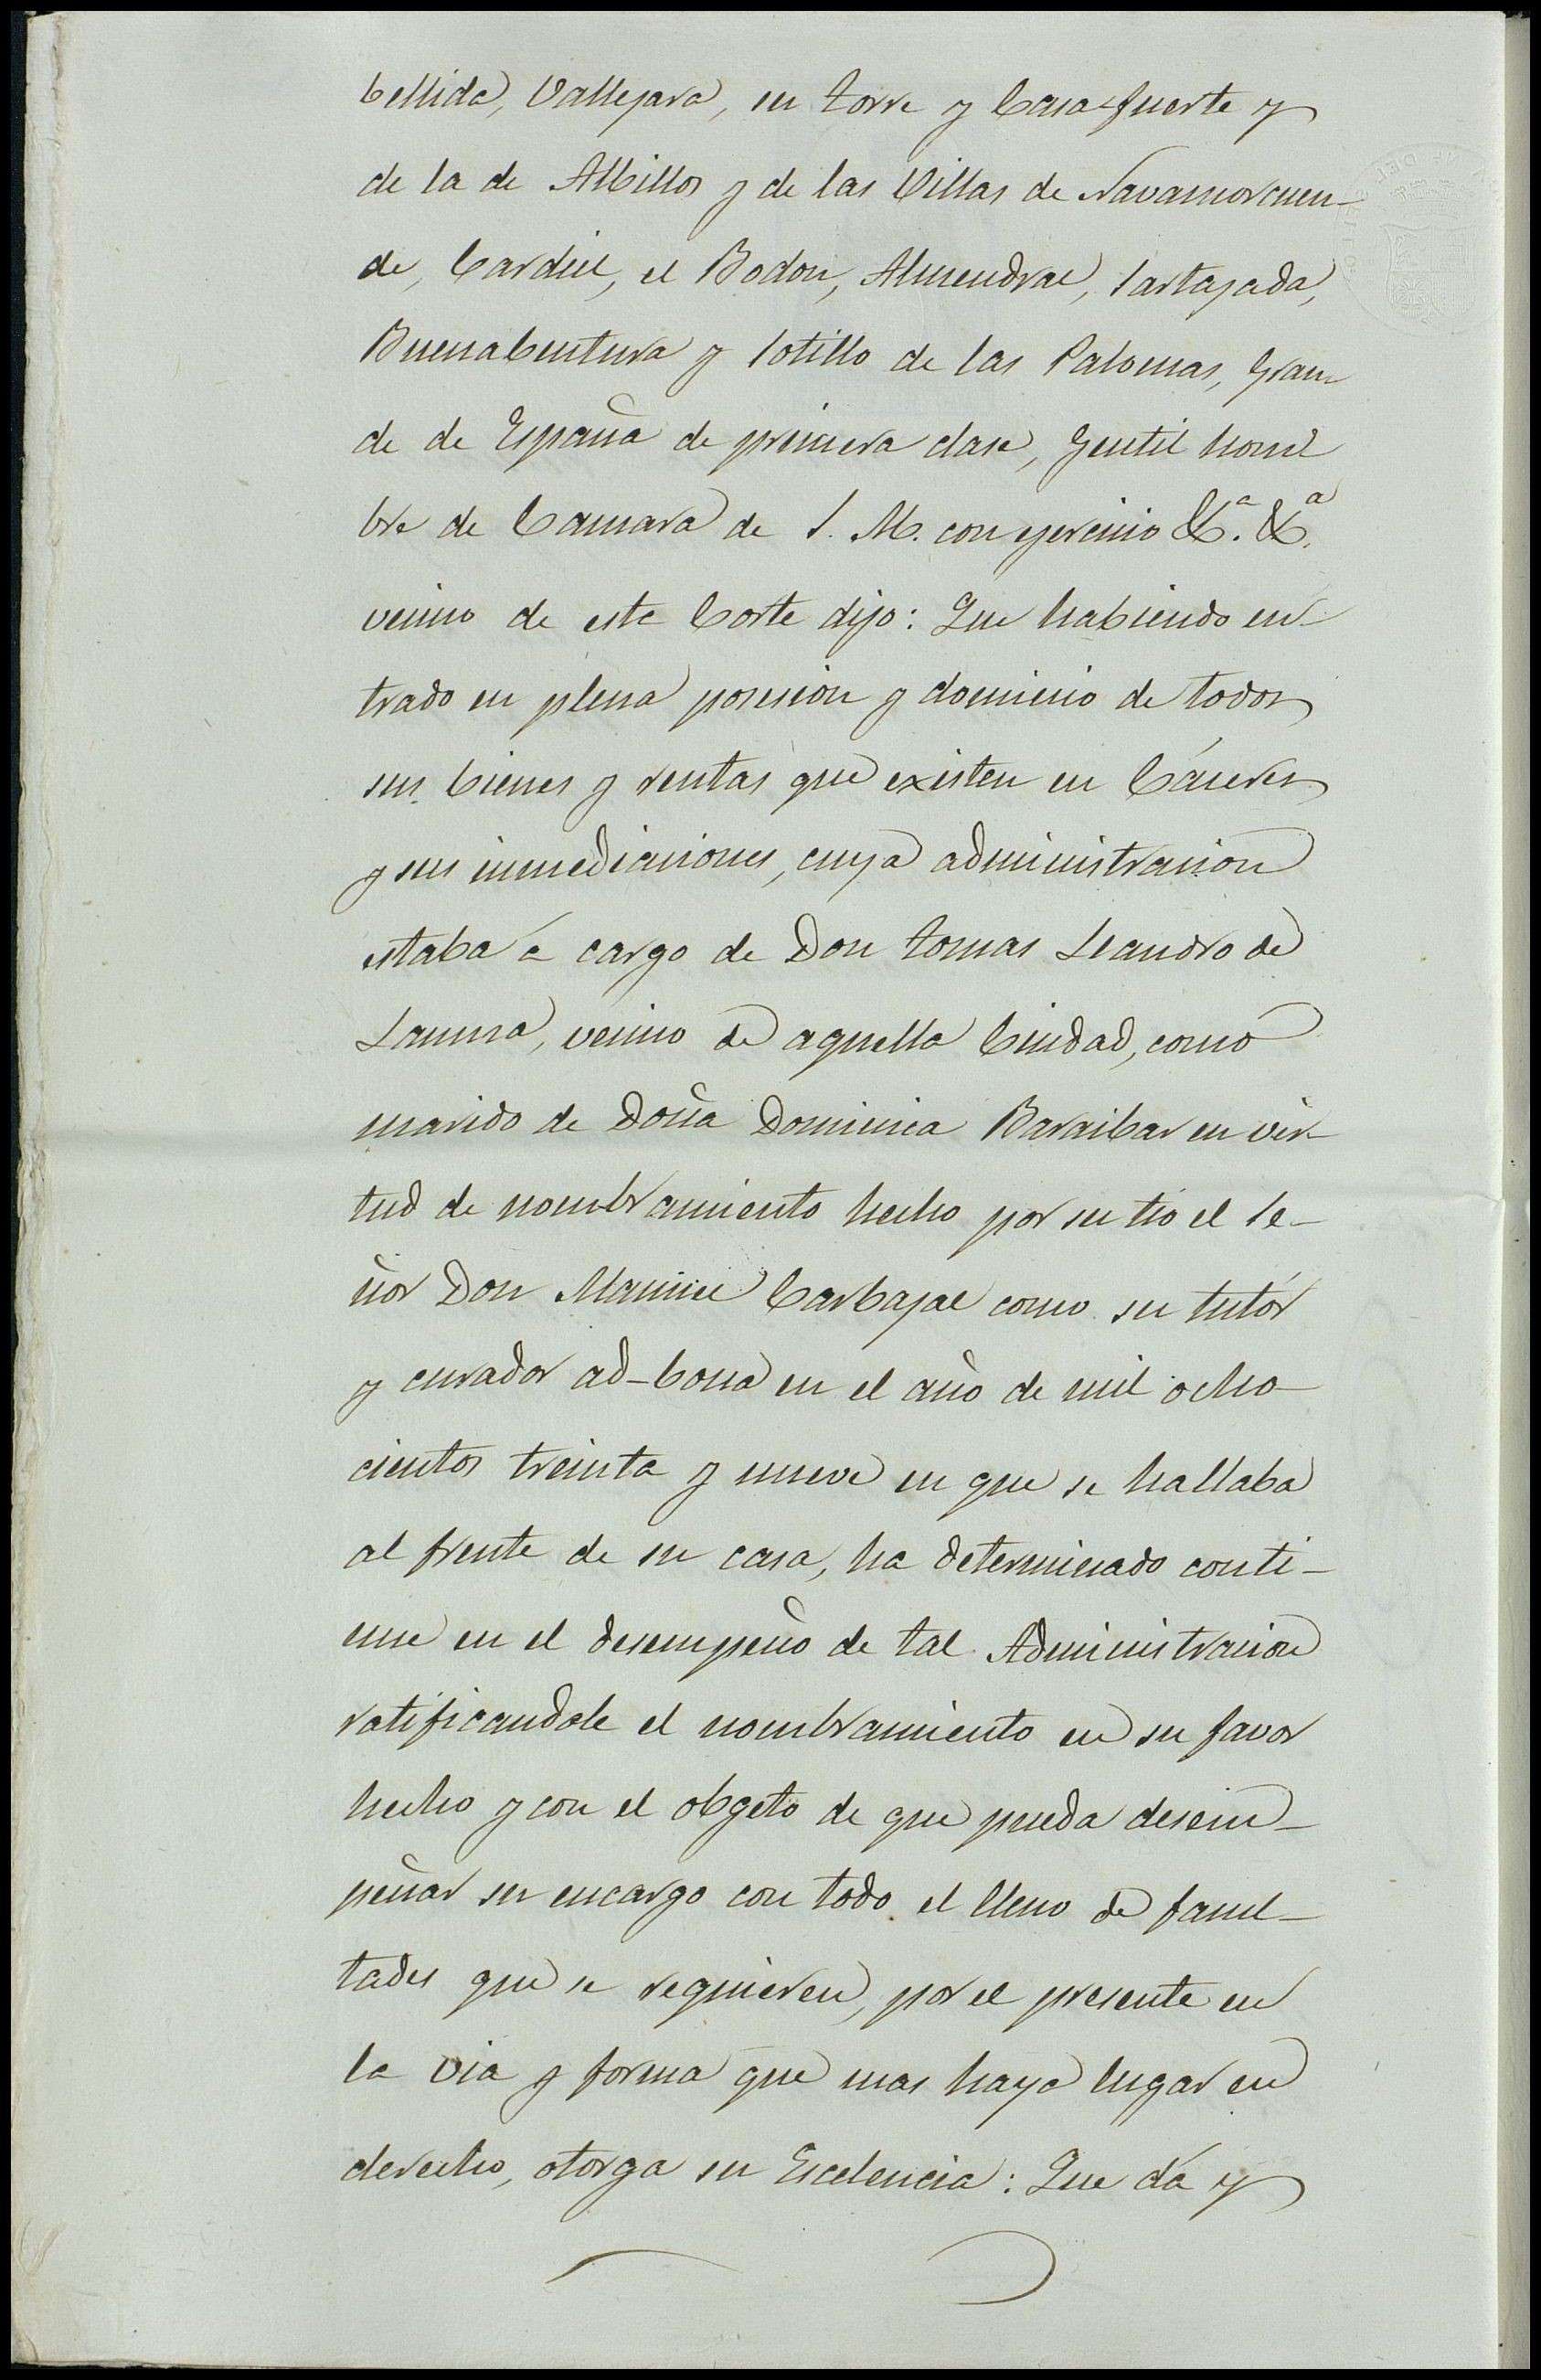 bellida, Vallejara, su torre y Casa-fuerte y
de la de Albillos y de las Villas de Navamorcuen-
de, Cardiel, el Bodon, Almendral, Sartajada,
Buenabentura y Sotillo de las Palomas, Gran-
de de España de primera clase, Gentil hom-
bre de Camara de S. M. con ejercicio &ª. &ª.
vecino de esta Corte dijo: Que habiendo en-
trado en plena posesion y dominio de todos
sus bienes y rentas que existen en Cáceres
y sus inmediaciones, cuya administracion
estaba á cargo de Don Tomas Leandro de
vecino de aquella Ciudad, como
marido de Doña Dominica Baraibar en vir-
tud de nombramiento hecho por su tio el Se-
ñor Don Manuel Carbajal como su tutór
y curador ad-bona en el año de mil ocho-
cientos treinta y nueve en que se hallaba
al frente de su casa, ha determinado conti-
nue en el desempeño de tal Administracion
ratificandole el nombramiento en su favor
hecho y con el obgeto de que pueda desem-
peñar su encargo con todo el lleno de facul-
tades que se requieren, por el presente en
la via y forma que mas haya lugar en
derecho, otorga su Escelencia: Que dá y